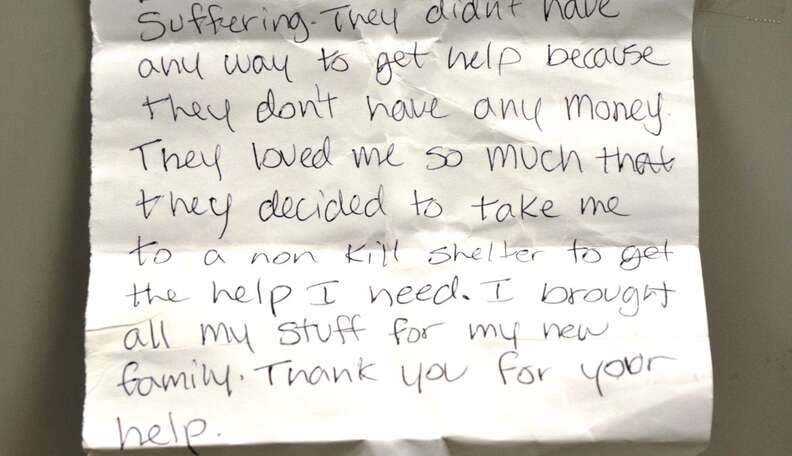 Suffering. They didn't have
any way to get help because
they don't have any money.
They loved me so much that
they decided to take me
to a non kill shelter to get
the help I need. I brought
all my stuff for my new
family. Thank you for your
help.